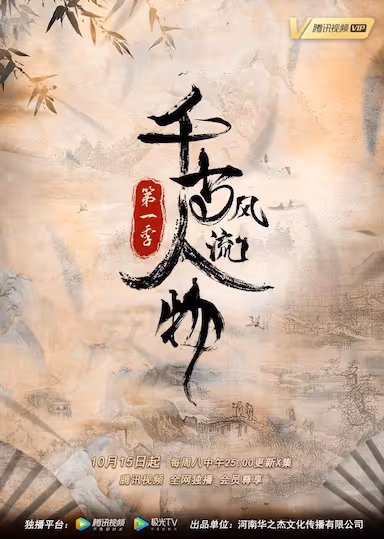 腾讯视频 VIP
千古风流人物
第一季
10月15日起 每周八中午25:00更新X集
腾讯视频 全网独播 会员尊享
独播平台： 腾讯视频 极光TV 出品单位：河南华之杰文化传播有限公司